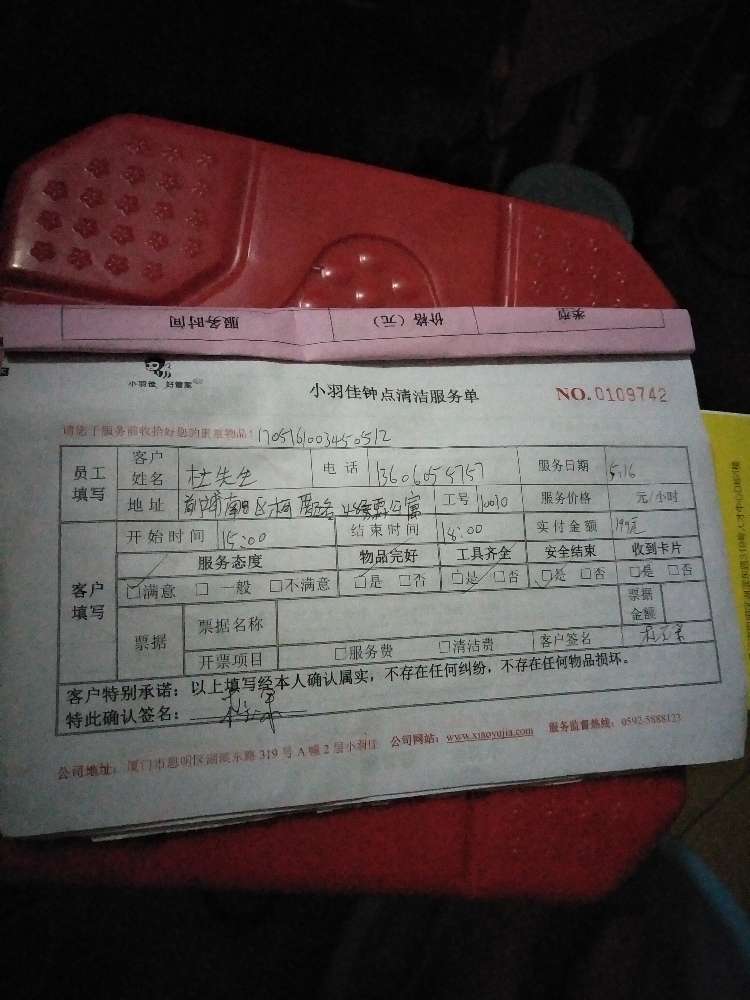 服务时间 价格（元） 类型
小羽佳 好管家
小羽佳钟点清洁服务单 NO.0109742
请您于服务前收拾好您的贵重物品！1705161003450512
员工填写 客户姓名 杜先生 电话 13606054757 服务日期 5.16
地址 工号 10010 服务价格 元/小时
开始时间 15:00 结束时间 18:00 实付金额 199元
客户填写 服务态度 物品完好 工具齐全 安全结束 收到卡片
□满意 □一般 □不满意 □是 □否 □是 □否 □是 □否 □是 □否
票据 票据名称 票据金额
开票项目 □服务费 □清洁费 客户签名
客户特别承诺：以上填写经本人确认属实，不存在任何纠纷，不存在任何物品损坏。
特此确认签名：
公司地址：厦门市思明区湖滨东路319号A幢2层小羽佳 公司网站：www.xiaoyujia.com 服务监督热线：0592-5888123